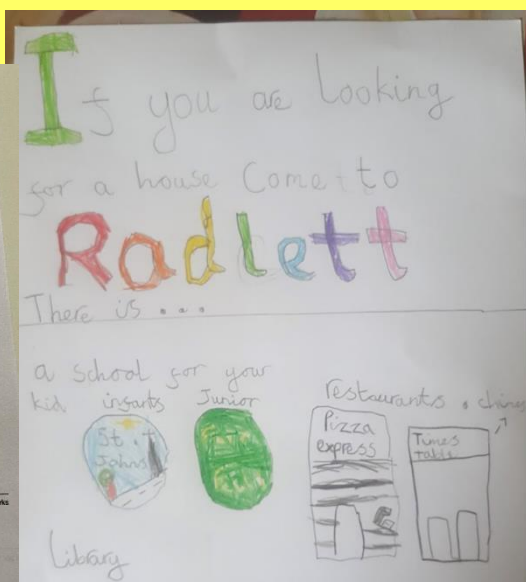 If you are Looking
for a house Come to
Radlett
There is...
a school for your
kid infants Junior
St.
Johns
restaurants
Pizza
express
Times
Table
Library